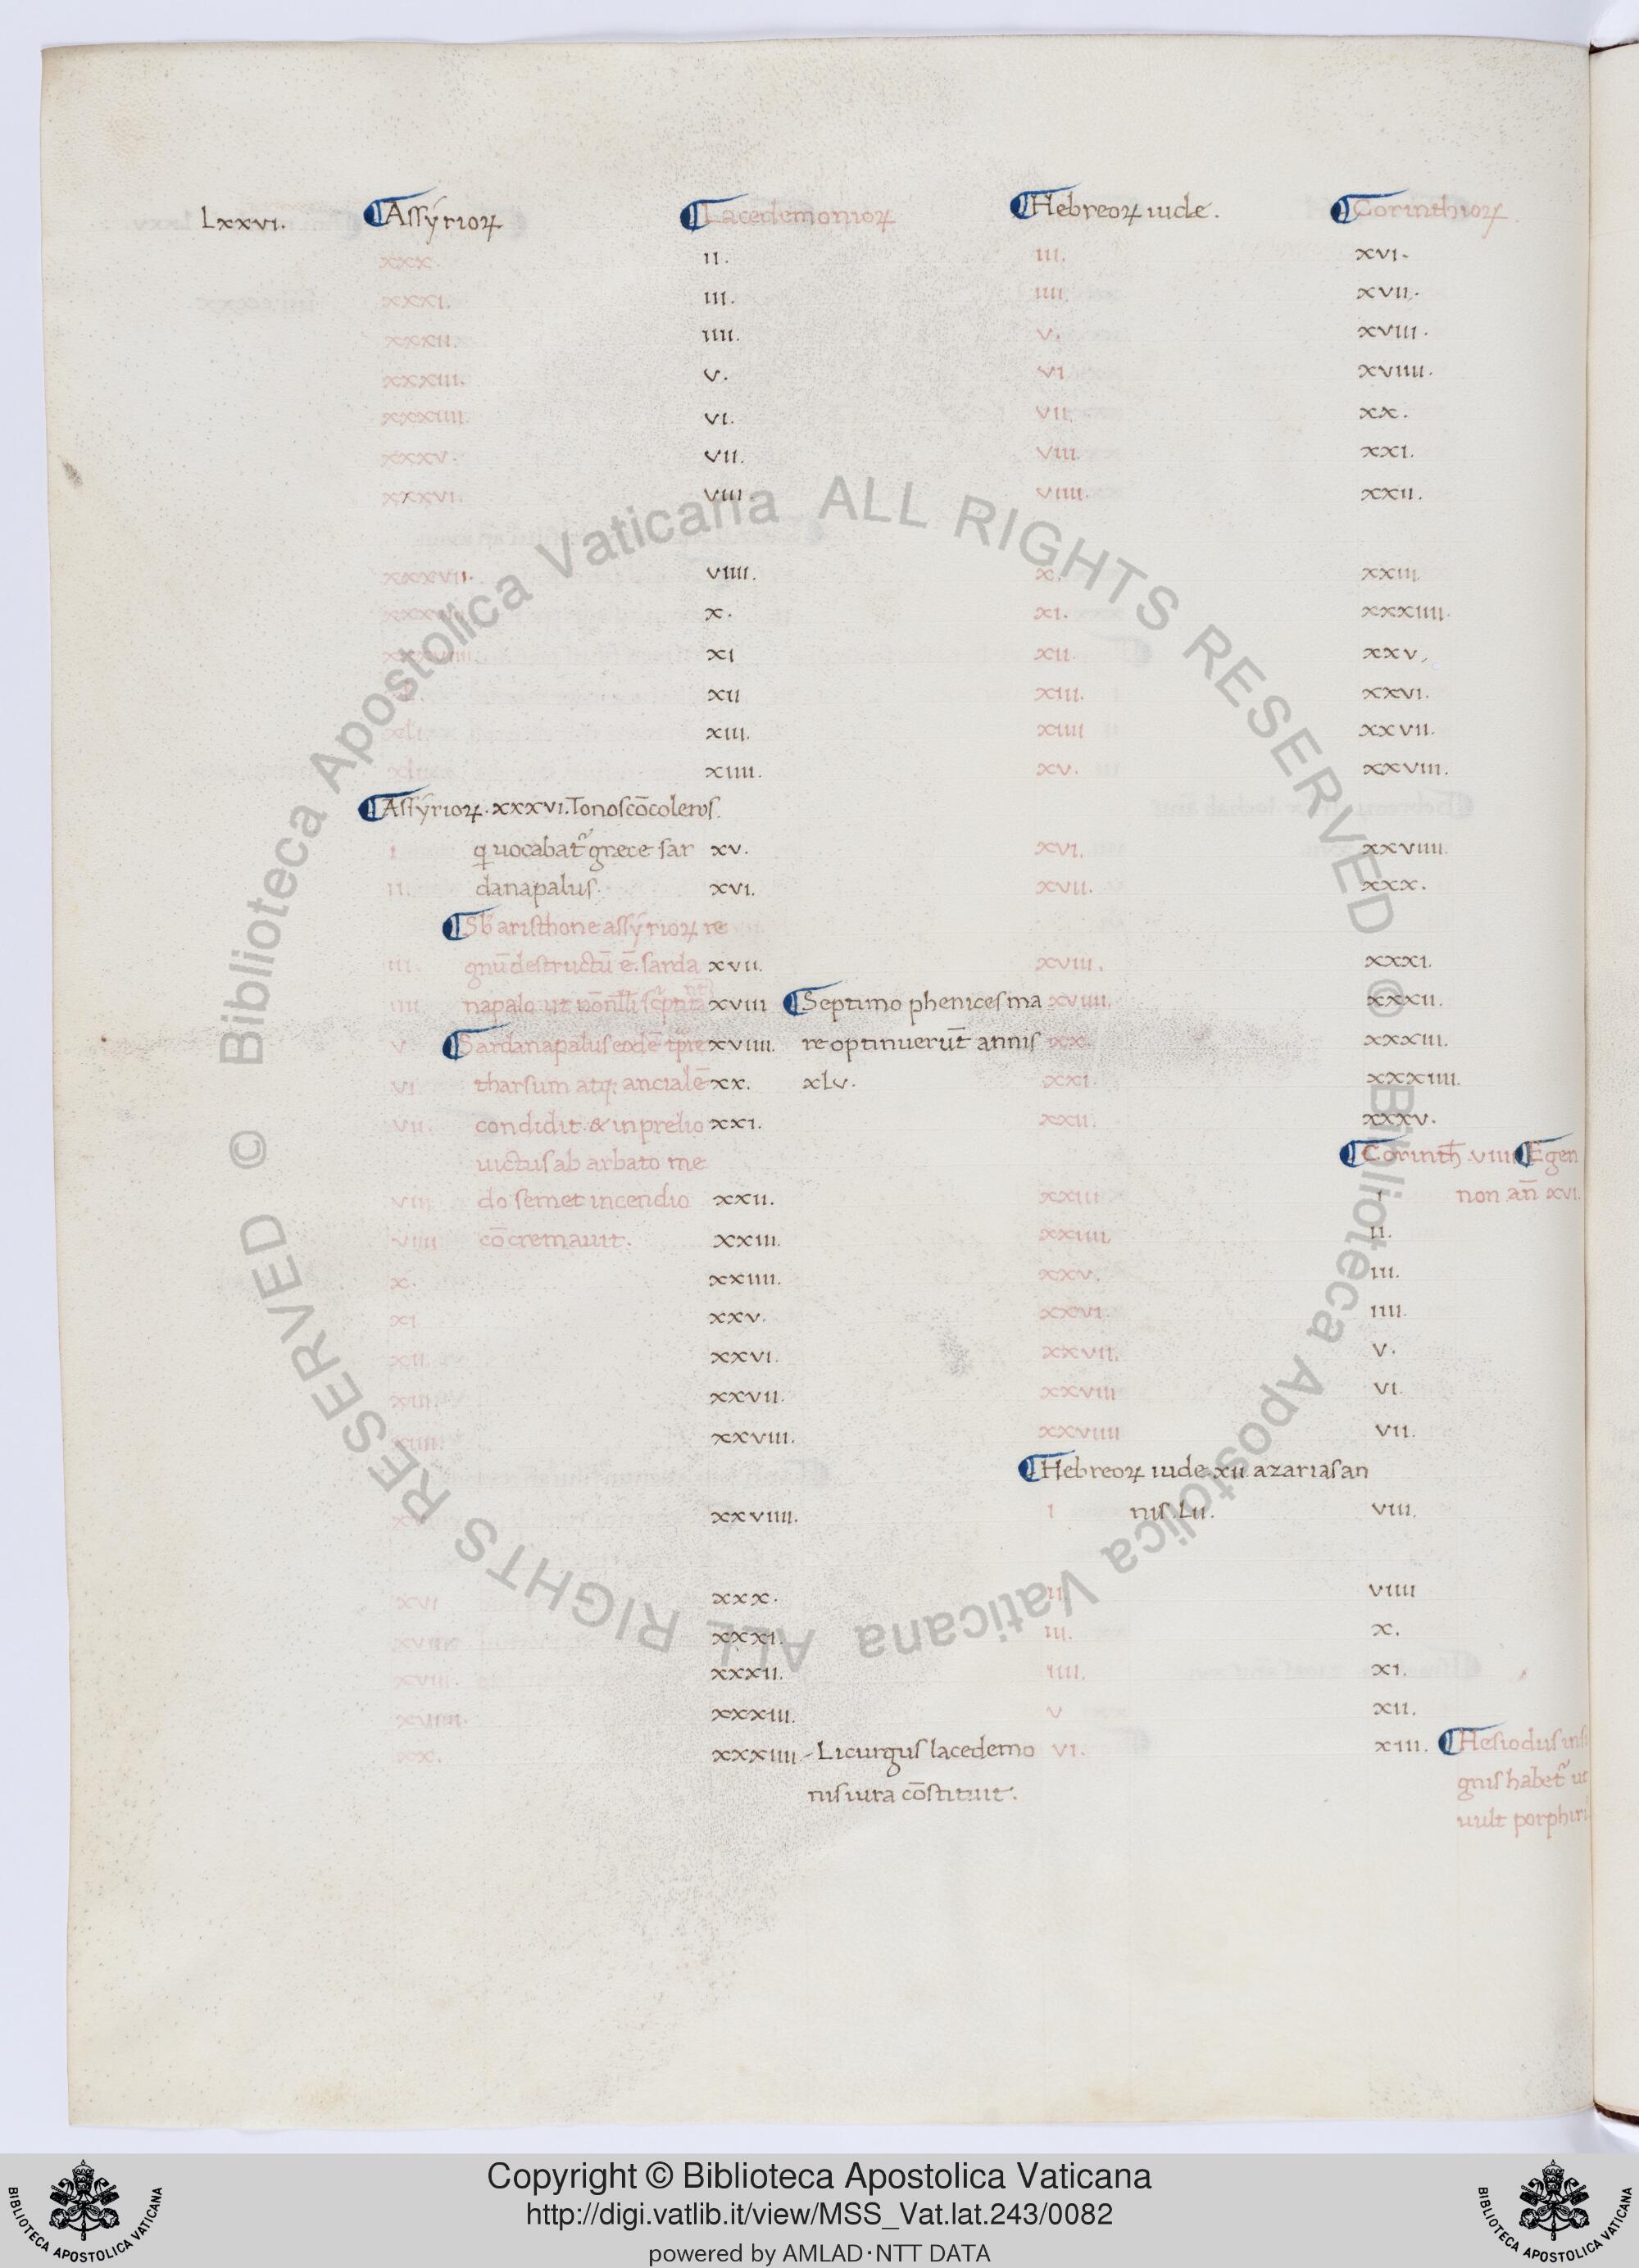 Lxxvi. Assyrioꝝ Lacedemonioꝝ Hebreoꝝ iude. Corinthioꝝ.
xxx. ii. iii. xvi.
xxxi. iii. iiii. xvii.
xxxii. iiii. v. xviii.
xxxiii. v. vi xviiii.
xxxiiii. vi. vii. xx.
xxxv. vii. viii. xxi.
xxxvi. viii. viiii. xxii.
xxxvii. viiii. x. xxiii.
x. xi. xxxiiii.
xi xii. xxv.
xii xiii. xxvi.
xli. xiii. xiiii xxvii.
xlii. xiiii. xv. xxviii.
Assyrioꝝ. xxxvi. Tonoscōcoleros.
i ꝙ uocabat᷑ grece sar xv. xvi. xxviiii.
ii. danapalus. xvi. xvii. xxx.
Sb aristhone assyrioꝝ re
iii. gnū destructū ē. sarda xvii. xviii. xxxi.
iiii napalo ut nōnłłi xviii Septimo phenices ma xviiii. xxxii.
v. Sardanapalus eodē tp̄re xviiii. re optinuerūt annis xx. xxxiii.
vi. tharsum atq; ancialē xx. xlv. xxi. xxxiiii.
vii. condidit. & in prelio xxi. xxii. xxxv.
uictus ab arbato me Corinth̄ viiii Egen
viii do semet incendio xxii. xxiii i non an̄ xvi.
viiii cōcremauit. xxiii. xxiiii. ii.
x. xxiiii. xxv. iii.
xi xxv. xxvi. iiii.
xii. xxvi. xxvii. v.
xiii. xxvii. xxviii vi.
xiiii. xxviii. xxviiii vii.
Hebreoꝝ iude xii azarias an
xxviiii. i nis. Lii. viii.
xvi xxx. ii. viiii
xvii xxxi. iii. x.
xviii. xxxii. iiii. xi.
xviiii. xxxiii. v xii.
xx. xxxiiii Licurgus lacedemo vi. xiii. Hesiodus insi
nis iura cōstituit. gnis habet᷑ ut
uult porphiri
Copyright © Biblioteca Apostolica Vaticana
http://digi.vatlib.it/view/MSS_Vat.lat.243/0082
powered by AMLAD·NTT DATA
BIBLIOTECA APOSTOLICA VATICANA
BIBLIOTECA APOSTOLICA VATICANA
© Biblioteca Apostolica Vaticana ALL RIGHTS RESERVED
© Biblioteca Apostolica Vaticana ALL RIGHTS RESERVED